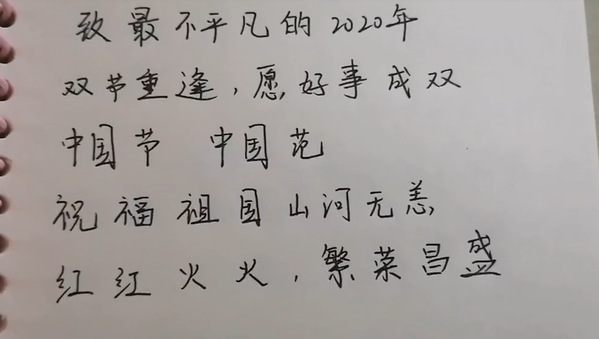 致最不平凡的2020年
双节重逢,愿好事成双
中国节 中国范
祝福祖国山河无恙
红红火火,繁菜昌盛